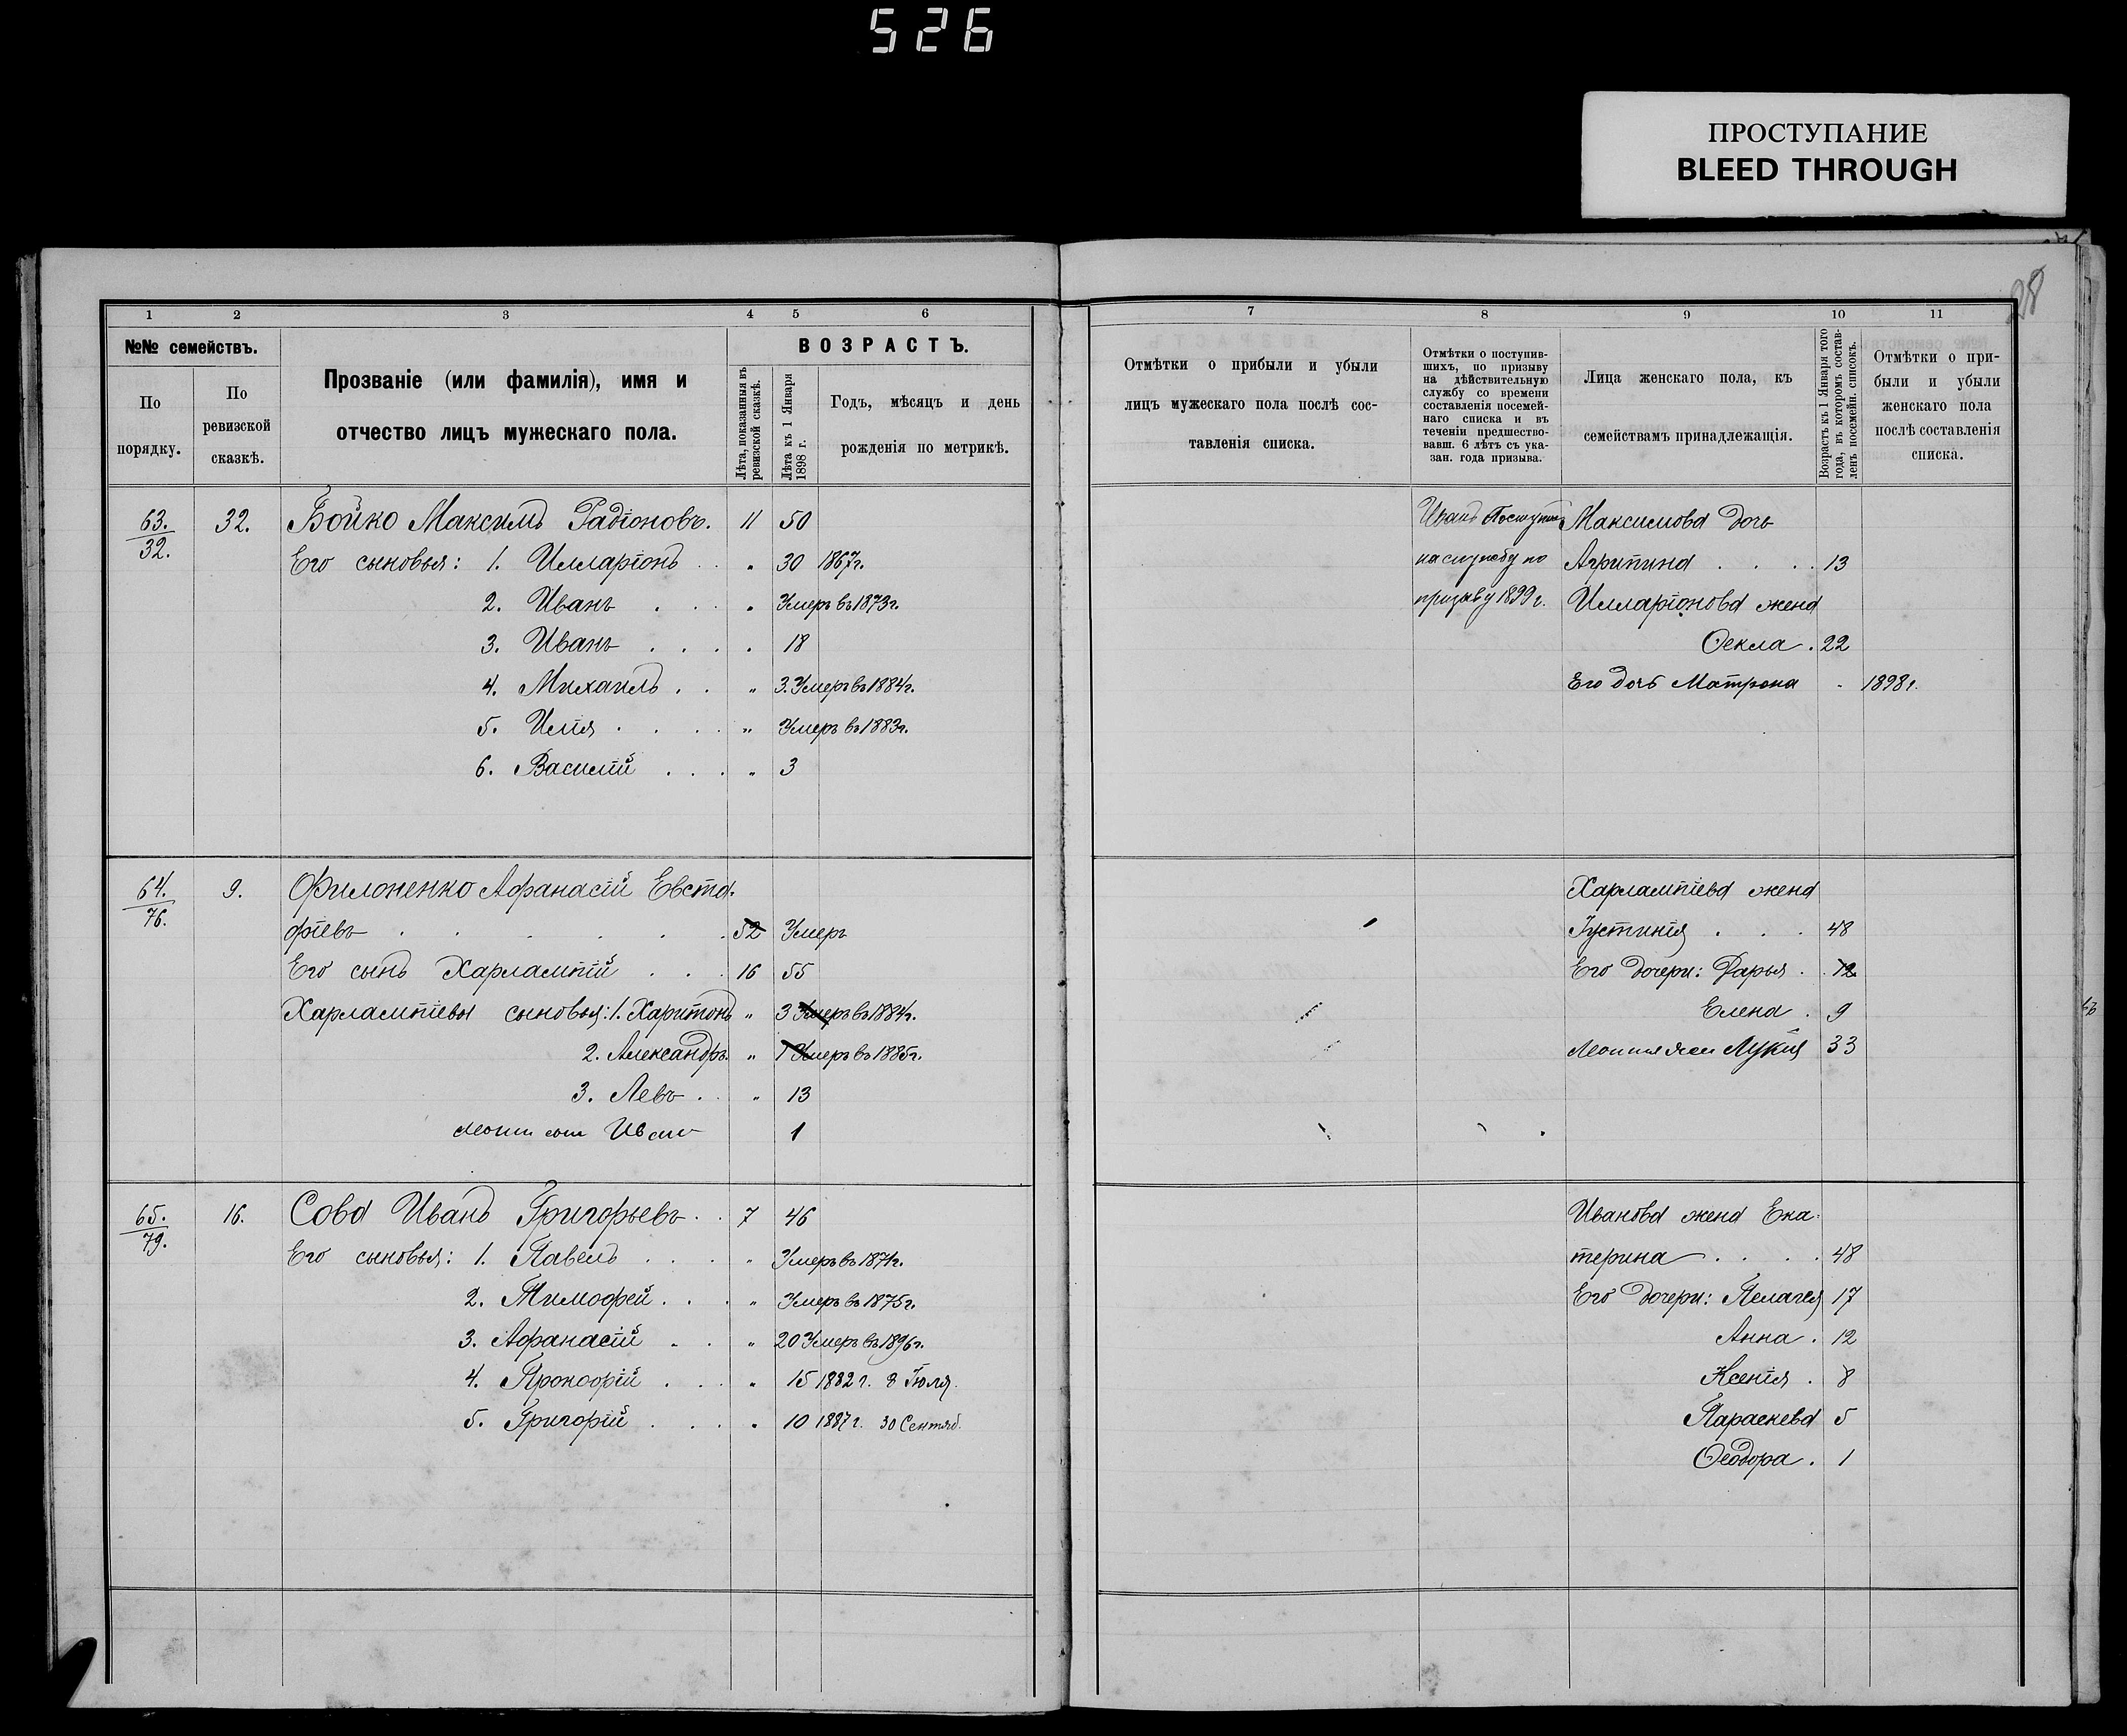 526
ПРОСТУПАНИЕ
BLEED THROUGH
28
1 2 3 4 5 6
№№ семействъ.
По порядку.
По ревизской сказкѣ.
Прозваніе (или фамилія), имя и
отчество лицъ мужескаго пола.
ВОЗРАСТЪ.
Лѣта, показанныя въ
ревизской сказкѣ.
Лѣта къ 1 Января
1898 г.
Годъ, мѣсяцъ и день
рожденія по метрикѣ.
63. 32. Бойко Максимъ Радіоновъ. 11 50
32.
Его сыновья: 1. Илларіонъ . . „ 30 1867г.
2. Иванъ . . „ Умеръ въ 1873г.
3. Иванъ . . . „ 18
4. Михаилъ . . „ 3. Умеръ въ 1884г.
5. Илія . . . „ Умеръ въ 1883г.
6. Василій . . . „ 3
64. 9. Филоненко Афанасій Евста-
76.
фіевъ . . . . . . 52 Умеръ
Его сынъ Харлампій . . . 16 55
Харлампіевы сыновья: 1. Харитонъ „ 3 Умеръ въ 1884г.
2. Александръ „ 1 Умеръ въ 1885г.
3. Левъ . . „ 13
Иван 1
65. 16. Сова Иванъ Григорьевъ . . 7 46
79.
Его сыновья: 1. Павелъ . . . „ Умеръ въ 1871г.
2. Тимофей . . . „ Умеръ въ 1875г.
3. Афанасій . . „ 20 Умеръ въ 1896г.
4. Прокофій . . . „ 15 1882 г. 8 Іюля.
5. Григорій . . . „ 10 1887 г. 30 Сентяб.
7 8 9 10 11
Отмѣтки о прибыли и убыли
лицъ мужескаго пола послѣ сос-
тавленія списка.
Отмѣтки о поступив-
шихъ, по призыву
на дѣйствительную
службу со времени
составленія посемей-
наго списка и въ
теченіи предшество-
вавш. 6 лѣтъ съ ука-
зан. года призыва.
Лица женскаго пола, къ
семействамъ принадлежащія.
Возрастъ къ 1 Января того
года, въ которомъ состав-
ленъ посемейн. списокъ.
Отмѣтки о при-
были и убыли
женскаго пола
послѣ составленія
списка.
Иванъ Поступилъ Максимова дочь
на службу по Агрипина . . . . 13
призыву 1899 г. Илларіонова жена
Ѳекла . 22
Его дочь Матрона - 1898 г.
Харлампіева жена
Іустинія . . . 48
Его дочери: Дарья . . 12
Елена . 9
Лукія 33
Иванова жена Ека-
терина . . . . 48
Его дочери: Пелагея 17
Анна . 12
Ксенія . 8
Параскева 5
Ѳеодора . 1